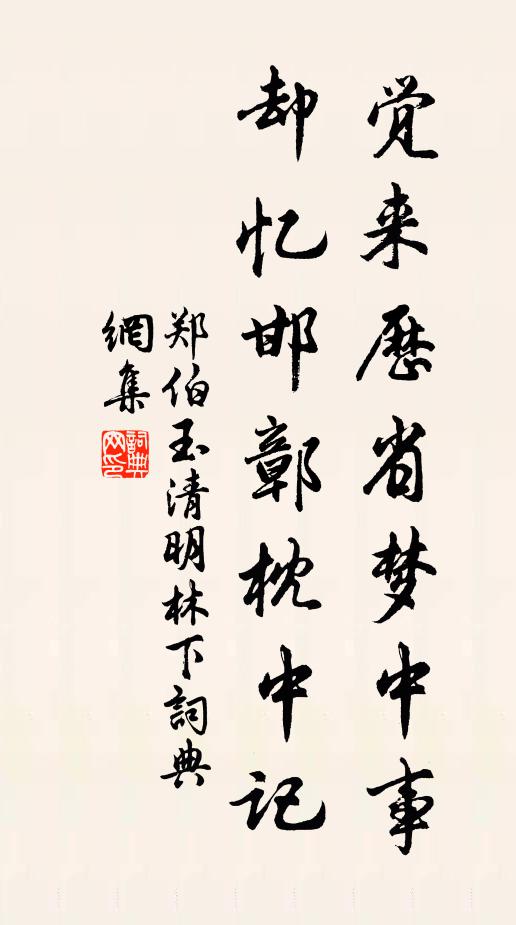 觉来历省梦中事
却忆邯鄣枕中记
郑伯玉清明林下詞典
網集
詞典網印